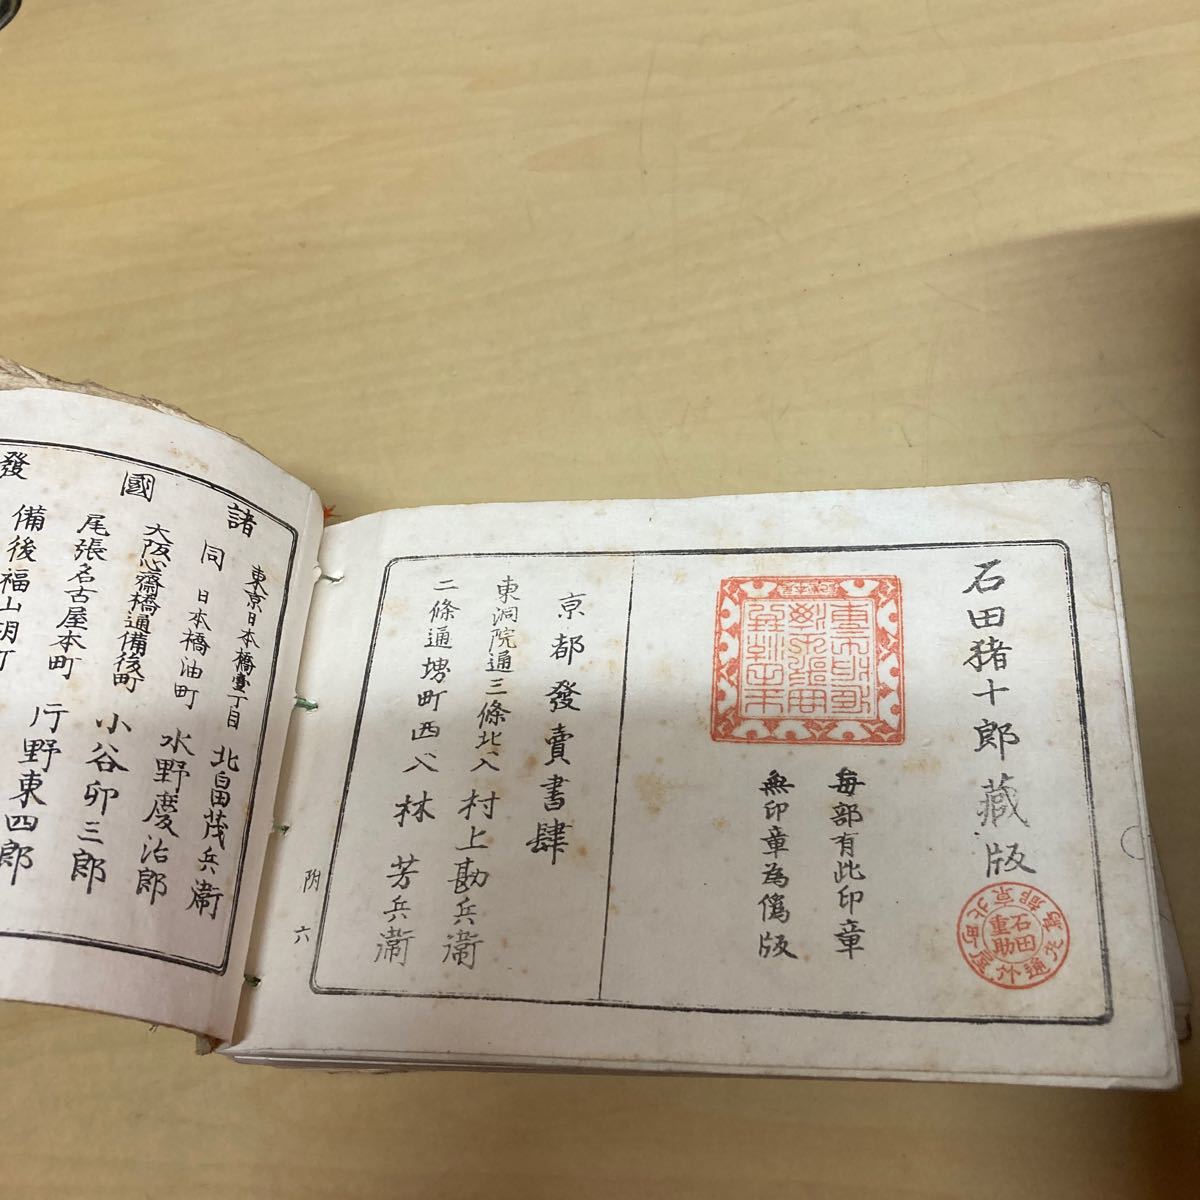 石田猪十郎藏版
每部有此印章
無印章為僞版
石田
重助
京都發賣書肆
東洞院通三條北入 村上勘兵衞
二條通堺町西入 林 芳兵衞
附 六
諸國發
東京日本橋壹丁目 北畠茂兵衞
同 日本橋油町 水野慶治郎
大阪心齋橋通備後町
尾張名古屋本町 小谷卯三郎
備後福山胡町 行野東四郎